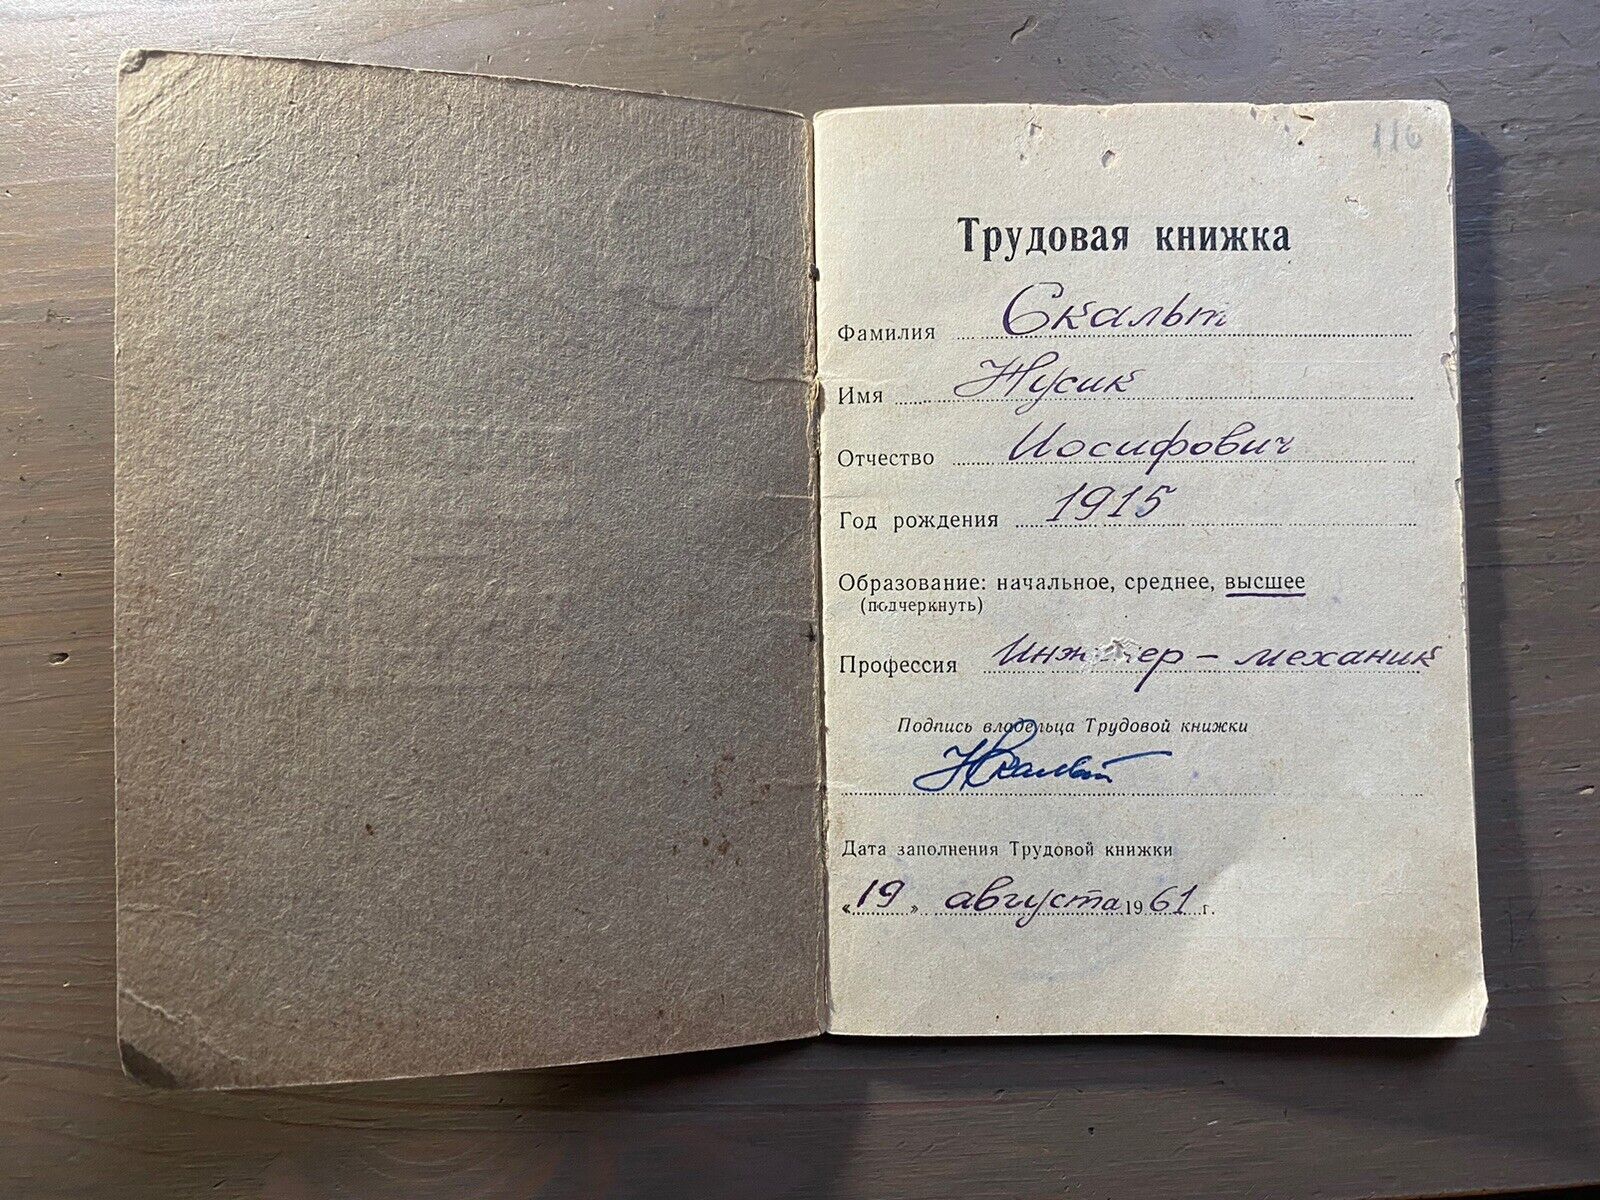 116
Трудовая книжка
Фамилия Скальт
Имя Нусик
Отчество Иосифович
Год рождения 1915
Образование: начальное, среднее, высшее
(подчеркнуть)
Профессия механик
Подпись владельца Трудовой книжки
Дата заполнения Трудовой книжки
«19» августа 1961 г.